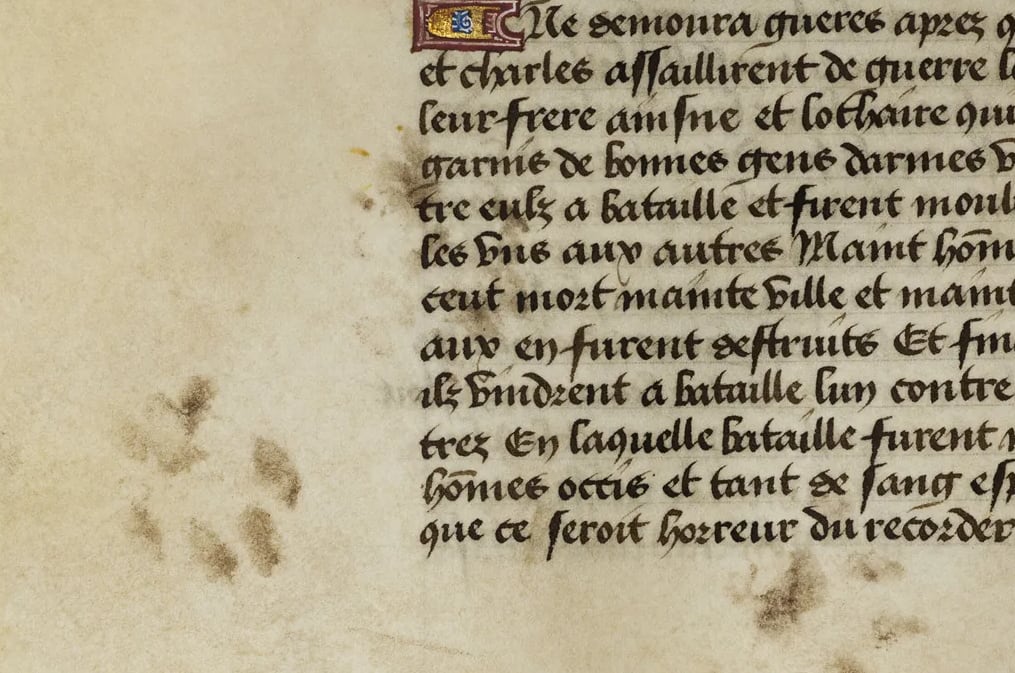 Ne demoura gueres aprez q
et charles assaillirent de guerre l
leur frere ainsne et lothaire qui
garnis de bonnes gens darmes v
tre eulz a bataille et firent moul
les vns aux autres Maint hōm
ceut mort mainte ville et maint
aux en furent destruits Et fin
ilz vindrent a bataille lun contre
trez En laquelle bataille furent
hōmes occis et tant de sang esp
que ce seroit horreur du recorder